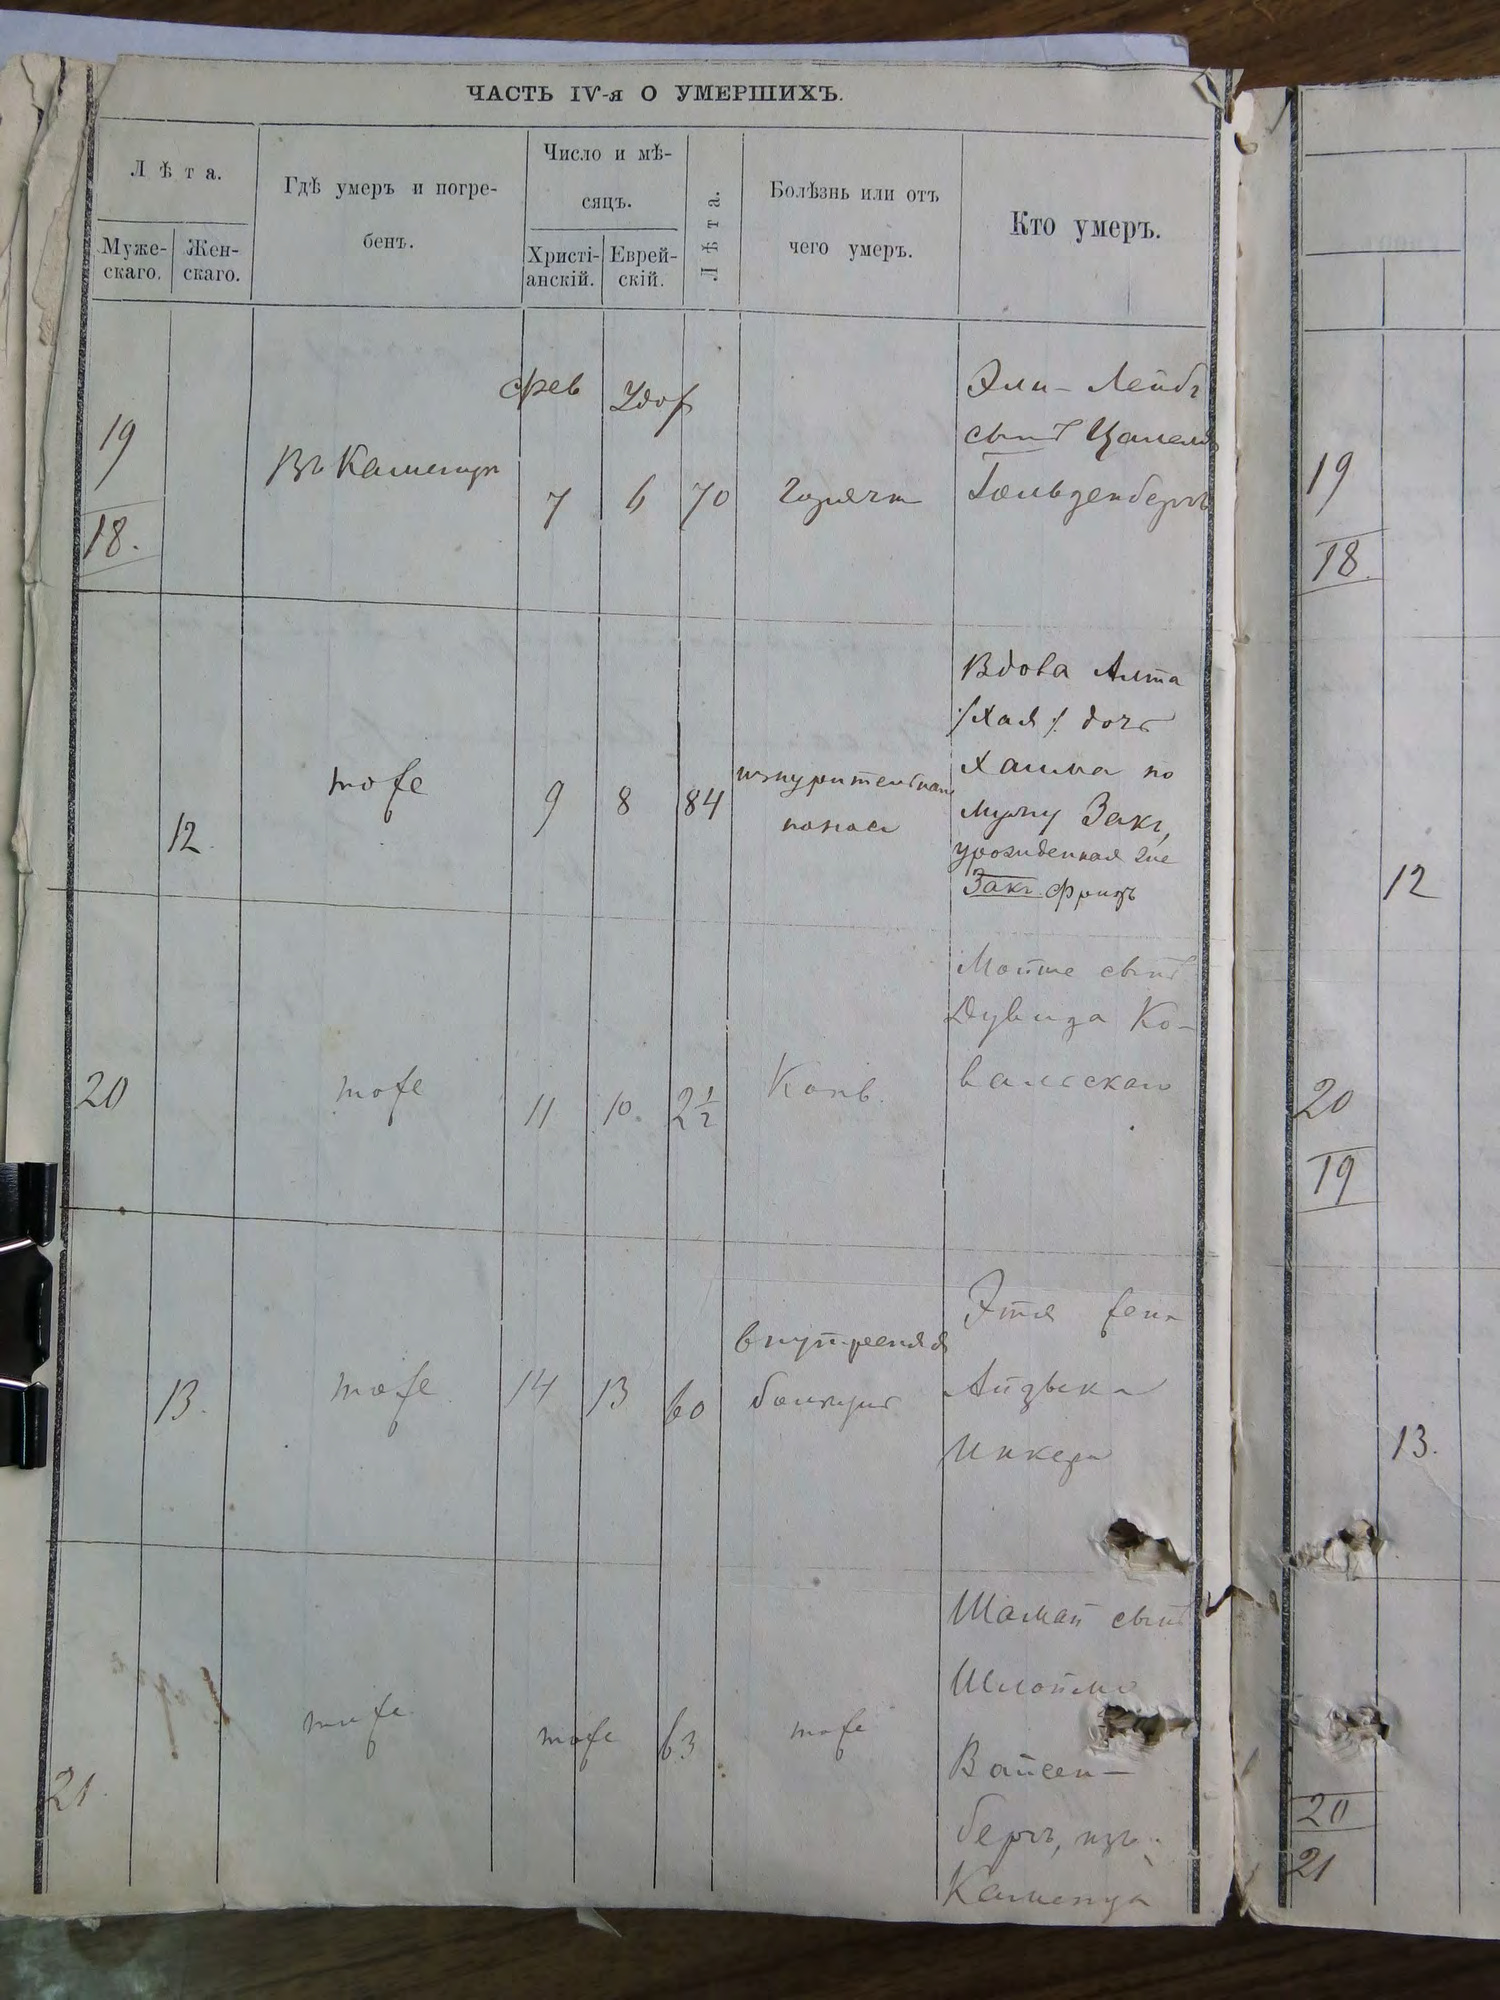 ЧАСТЬ IV-я О УМЕРШИХЪ.
Лѣта.
Муже-
скаго.
Жен-
скаго.
Гдѣ умеръ и погре-
бенъ.
Число и мѣ-
сяцъ.
Христі-
анскій.
Еврей-
скій.
Лѣта.
Болѣзнь или отъ
чего умеръ.
Кто умеръ.
19
18.
Въ Каменцѣ
фев
7
6
70
Эли-Лейбъ
сынъ
Гольденбергъ
12
тоже
9
8
84
изнурительный
поносъ
Вдова Алта
/:Хая:/ дочь
Хаима по
мужу Закъ,
урожденная
Закъ
20
тоже
11
10
2 1/2
Мойше сынъ
Дувида Ко-
вальскаго
13.
тоже
14
13
60
внутреняя
Этля жена
Айзыка
21
тоже
тоже
63
тоже
Шамай сынъ
Шлойма
Вайсен-
бергъ, изъ
Каменца
19
18
12
20
19
13.
20
21